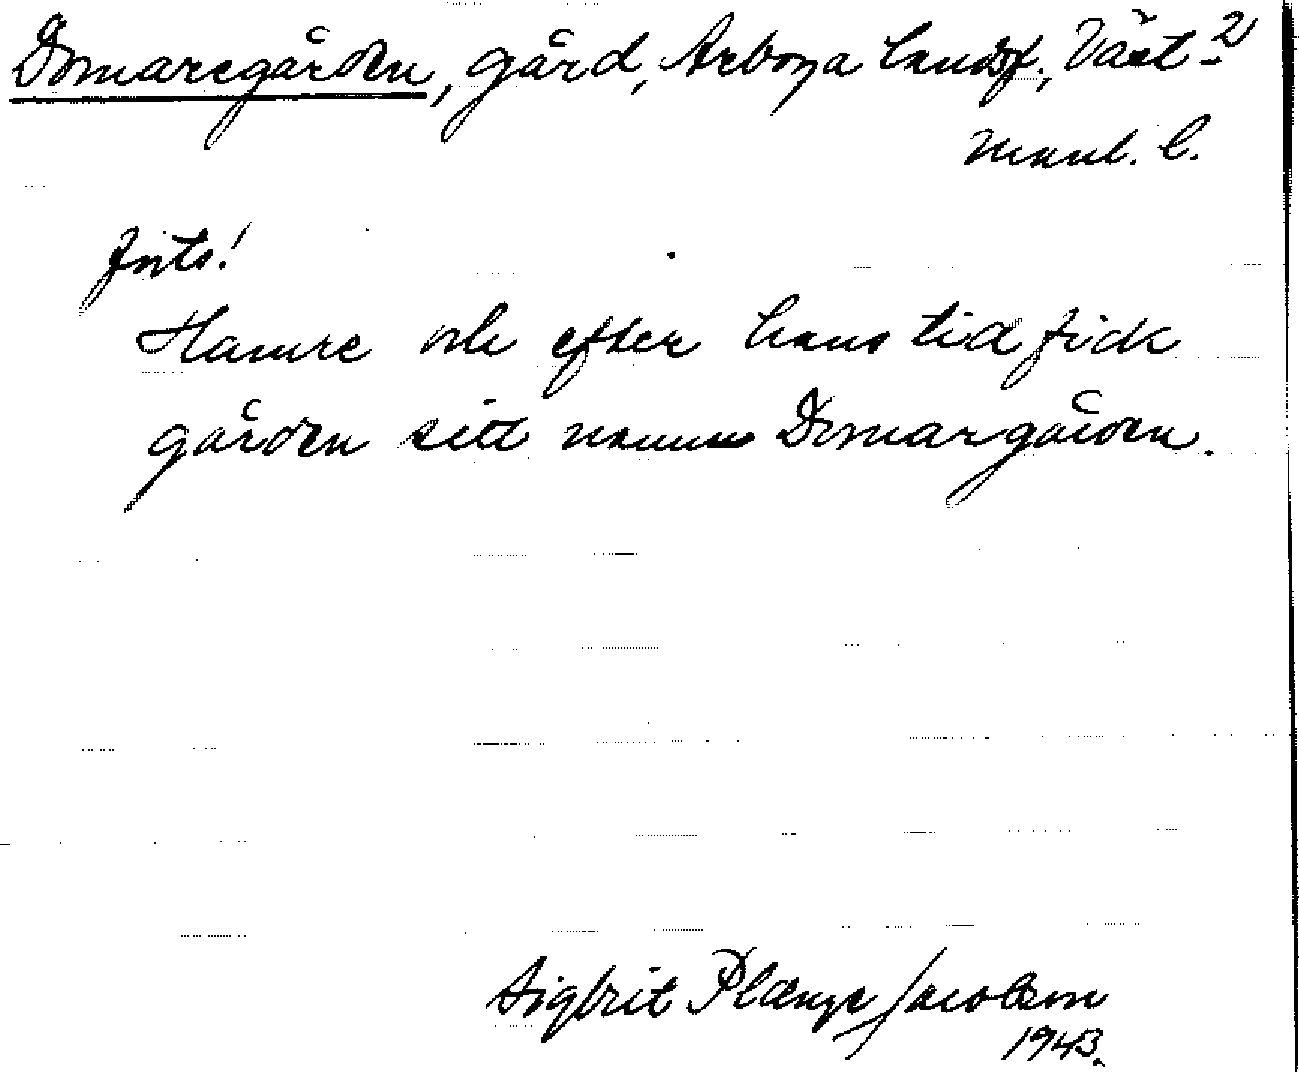 Domaregården, gård, Arboga landsf., Väst- 2
manl. l.
forts!
Hamre och efter hans tid fick
gården sitt namn Domargården.
Sigbrit Plænge Jacobson
1943.